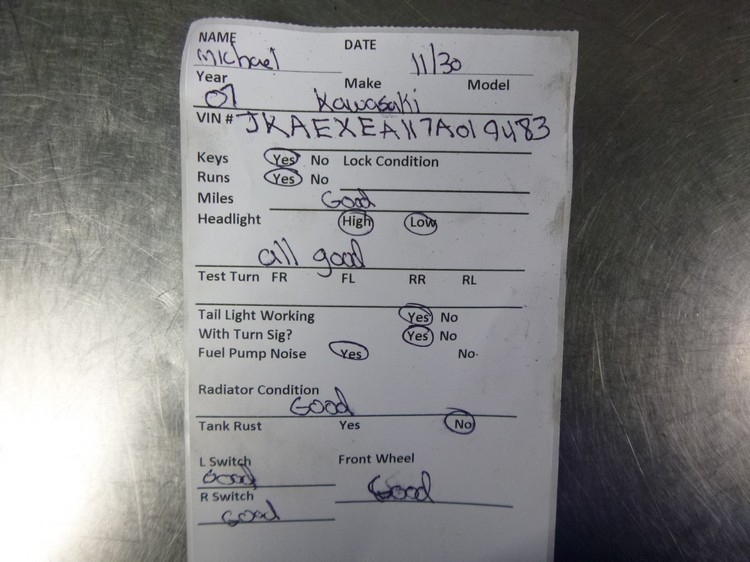 NAME Michael DATE 11/30
Year 07 Make Kawasaki Model
VIN # JKAEXEA117A019483
Keys Yes No Lock Condition
Runs Yes No
Miles Good
Headlight High Low
all good
Test Turn FR FL RR RL
Tail Light Working Yes No
With Turn Sig? Yes No
Fuel Pump Noise Yes No
Radiator Condition
Good
Tank Rust Yes No
L Switch Front Wheel
Good Good
R Switch
Good